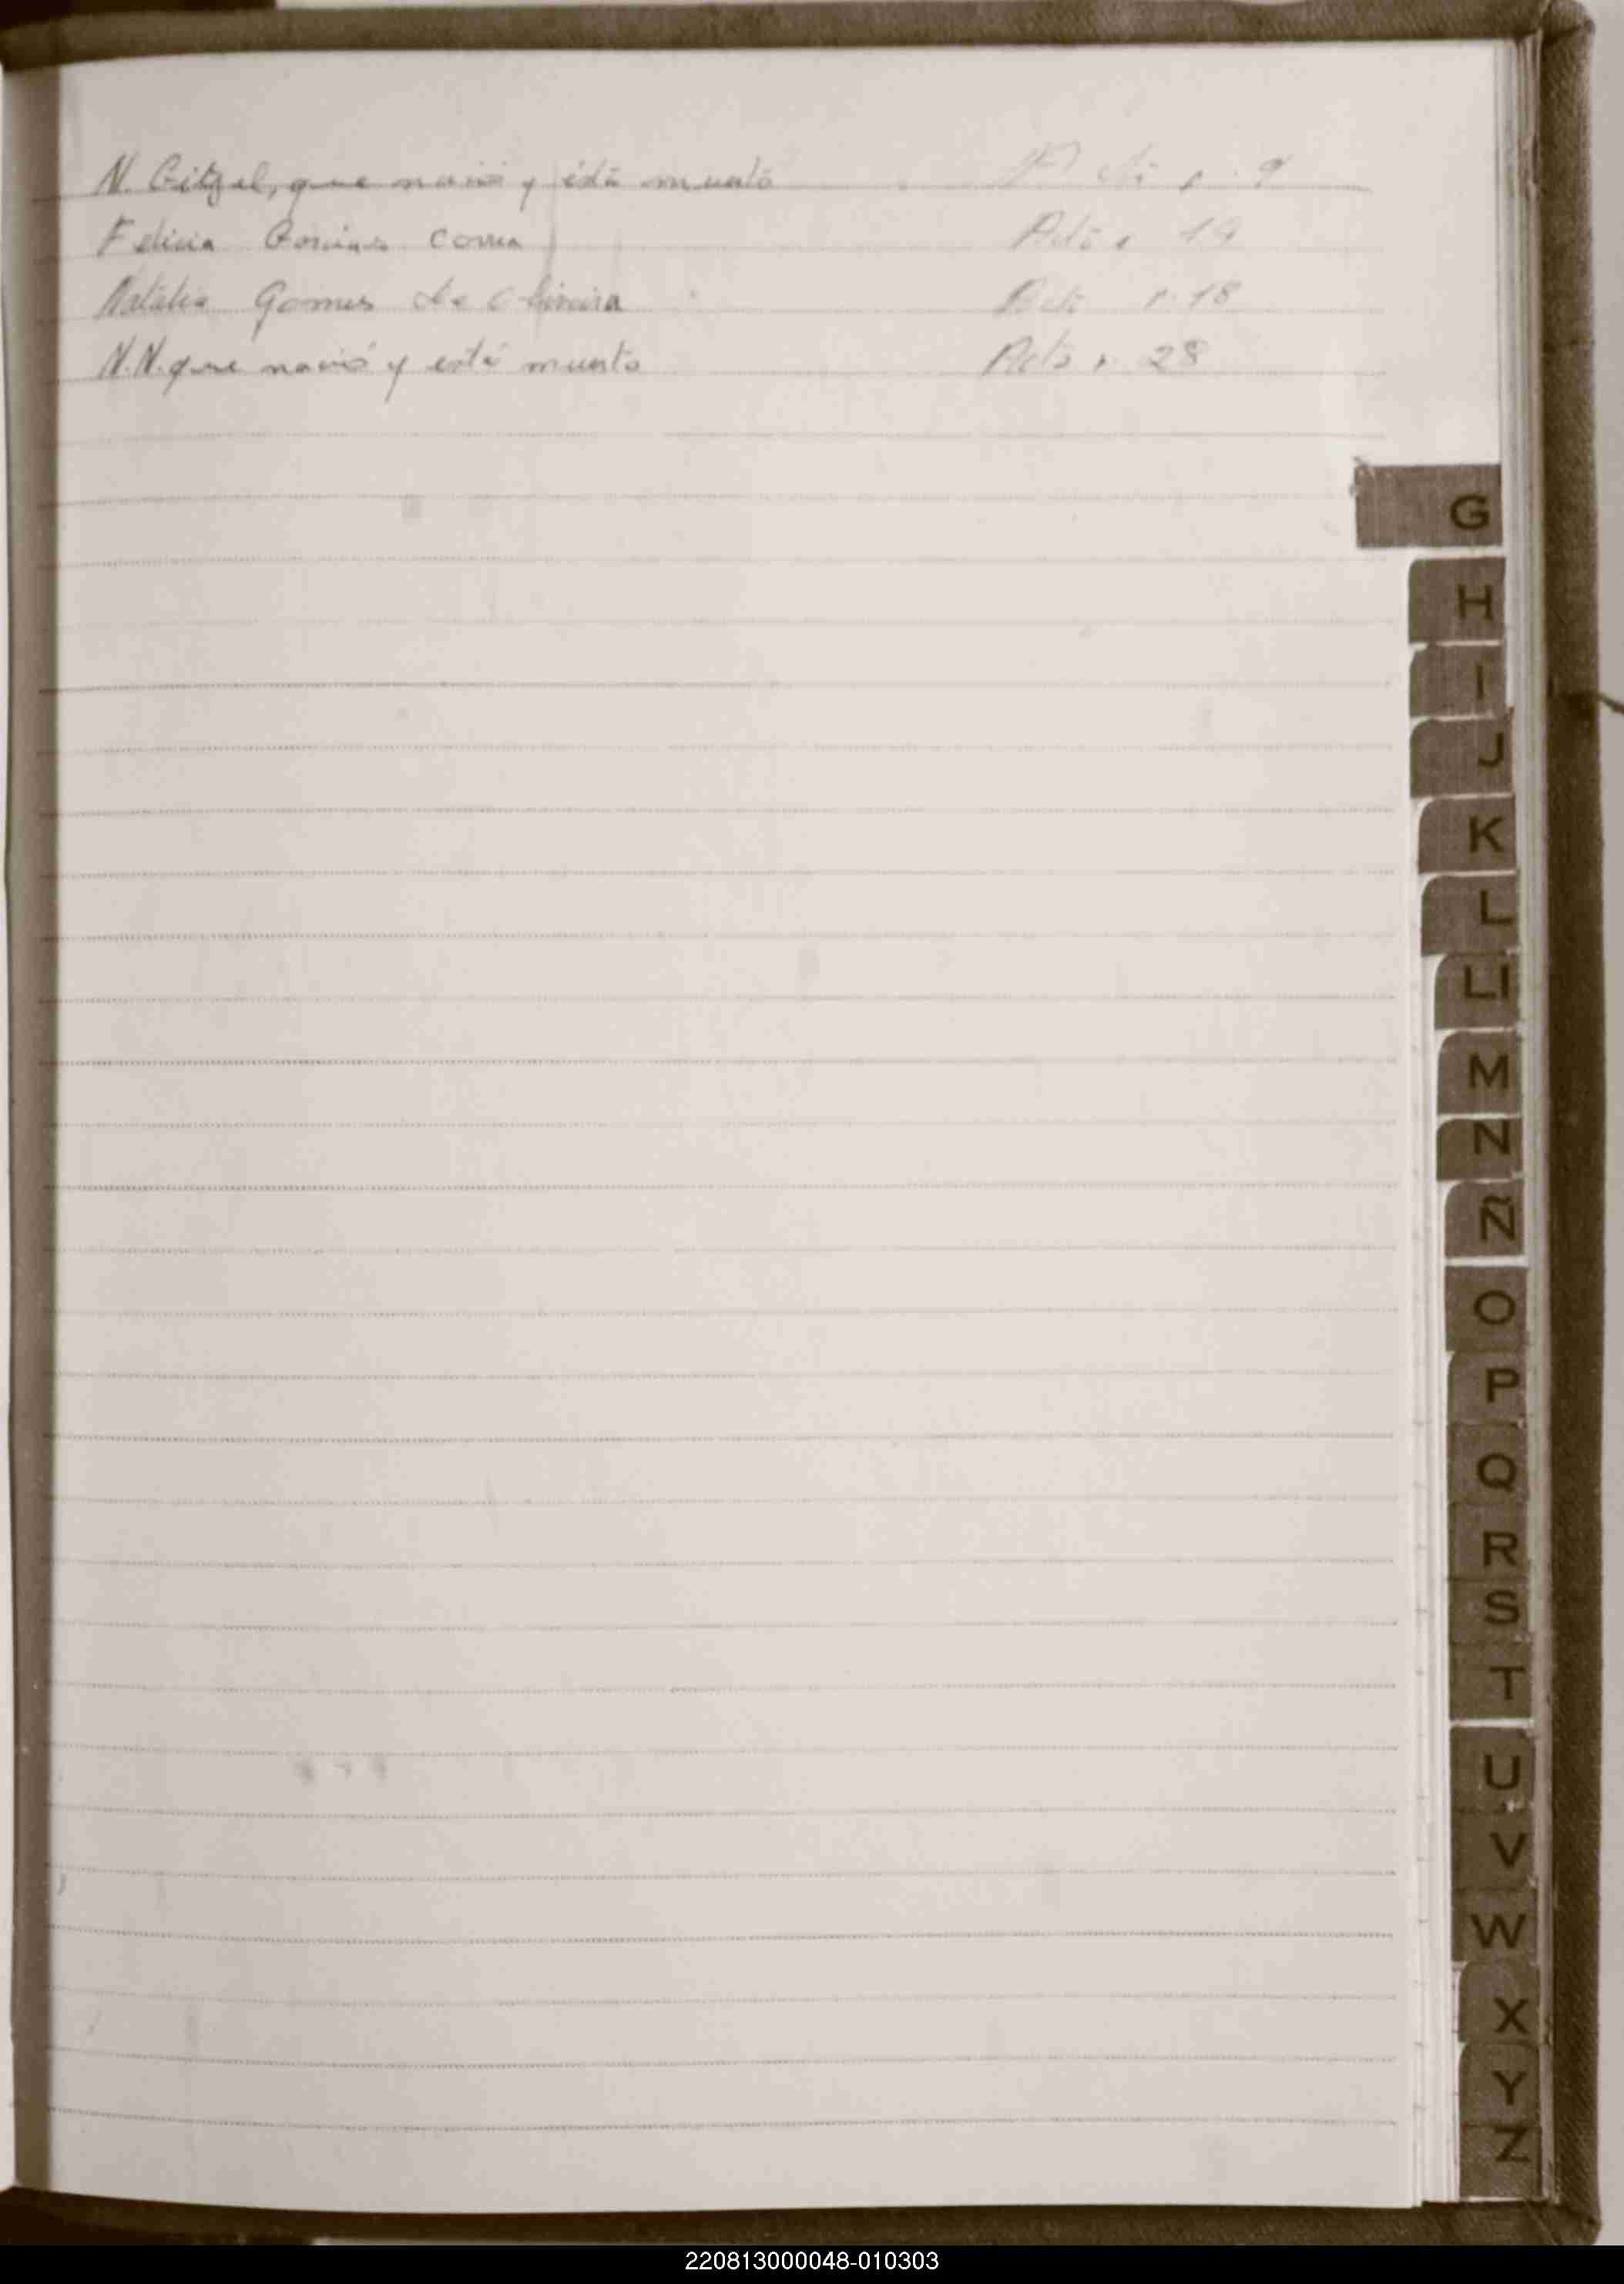 N. Gitzel, que nació y está muerto Acta n. 9
Felicia Correa Acta n. 14
Natalia Gomes de Oliveira Acta n. 18
N.N. que nació y está muerto Acta n. 28
G
H
I
J
K
L
Ll
M
N
Ñ
O
P
Q
R
S
T
U
V
W
X
Y
Z
220813000048-010303